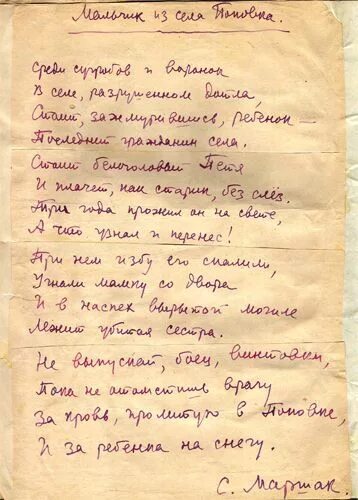 Мальчик из села Поповка.
Среди сугробов и воронок
В селе, разрушенном дотла,
Стоит, зажмурившись, ребенок —
Последний гражданин села.
Стоит белоголовый Петя
И плачет, как старик, без слез.
Три года прожил он на свете,
А что узнал и перенес!
При нем избу его спалили,
Угнали мамку со двора
И в наспех вырытой могиле
Лежит убитая сестра.
Не выпускай, боец, винтовки,
Пока не отомстишь врагу
За кровь, пролитую в Поповке,
И за ребенка на снегу.
С. Маршак.